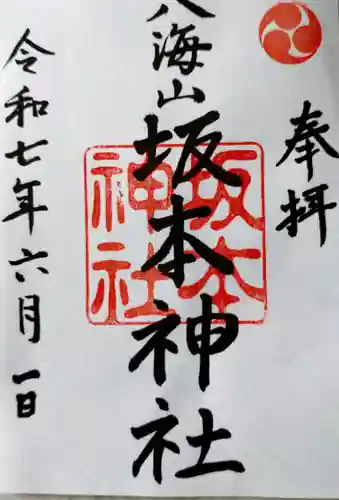 奉拝
八海山
坂本神社
坂本
神社
令和七年六月一日